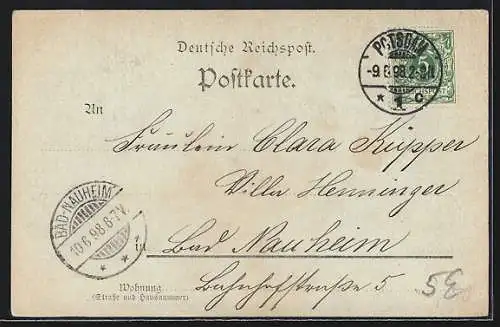 Deutsche Reichspost.
Postkarte.
POTSDAM
-9.6.98.2-3N.
* 1 C
5
An
Fräulein Clara Küpper
Villa Henninger
in Bad Nauheim
Bahnhofstraße 5
BAD-NAUHEIM
10.6.98.6-7V.
* *
Wohnung
(Straße und Hausnummer)